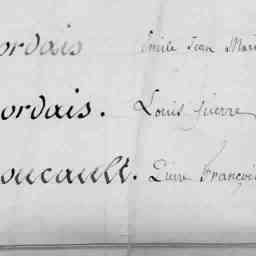 ordais Emile Jean Mari
ordais. Louis Pierre
oucault. Pierre François